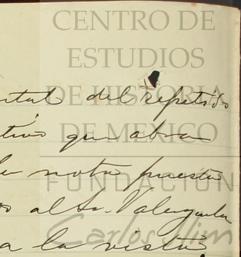 CENTRO DE
ESTUDIOS
DE HISTORIA
DE MEXICO
FUNDACION
Carlos Slim
ental del repetido
tivo que obra
le nota puesta
os al Sr. Valenzuela
a la vista